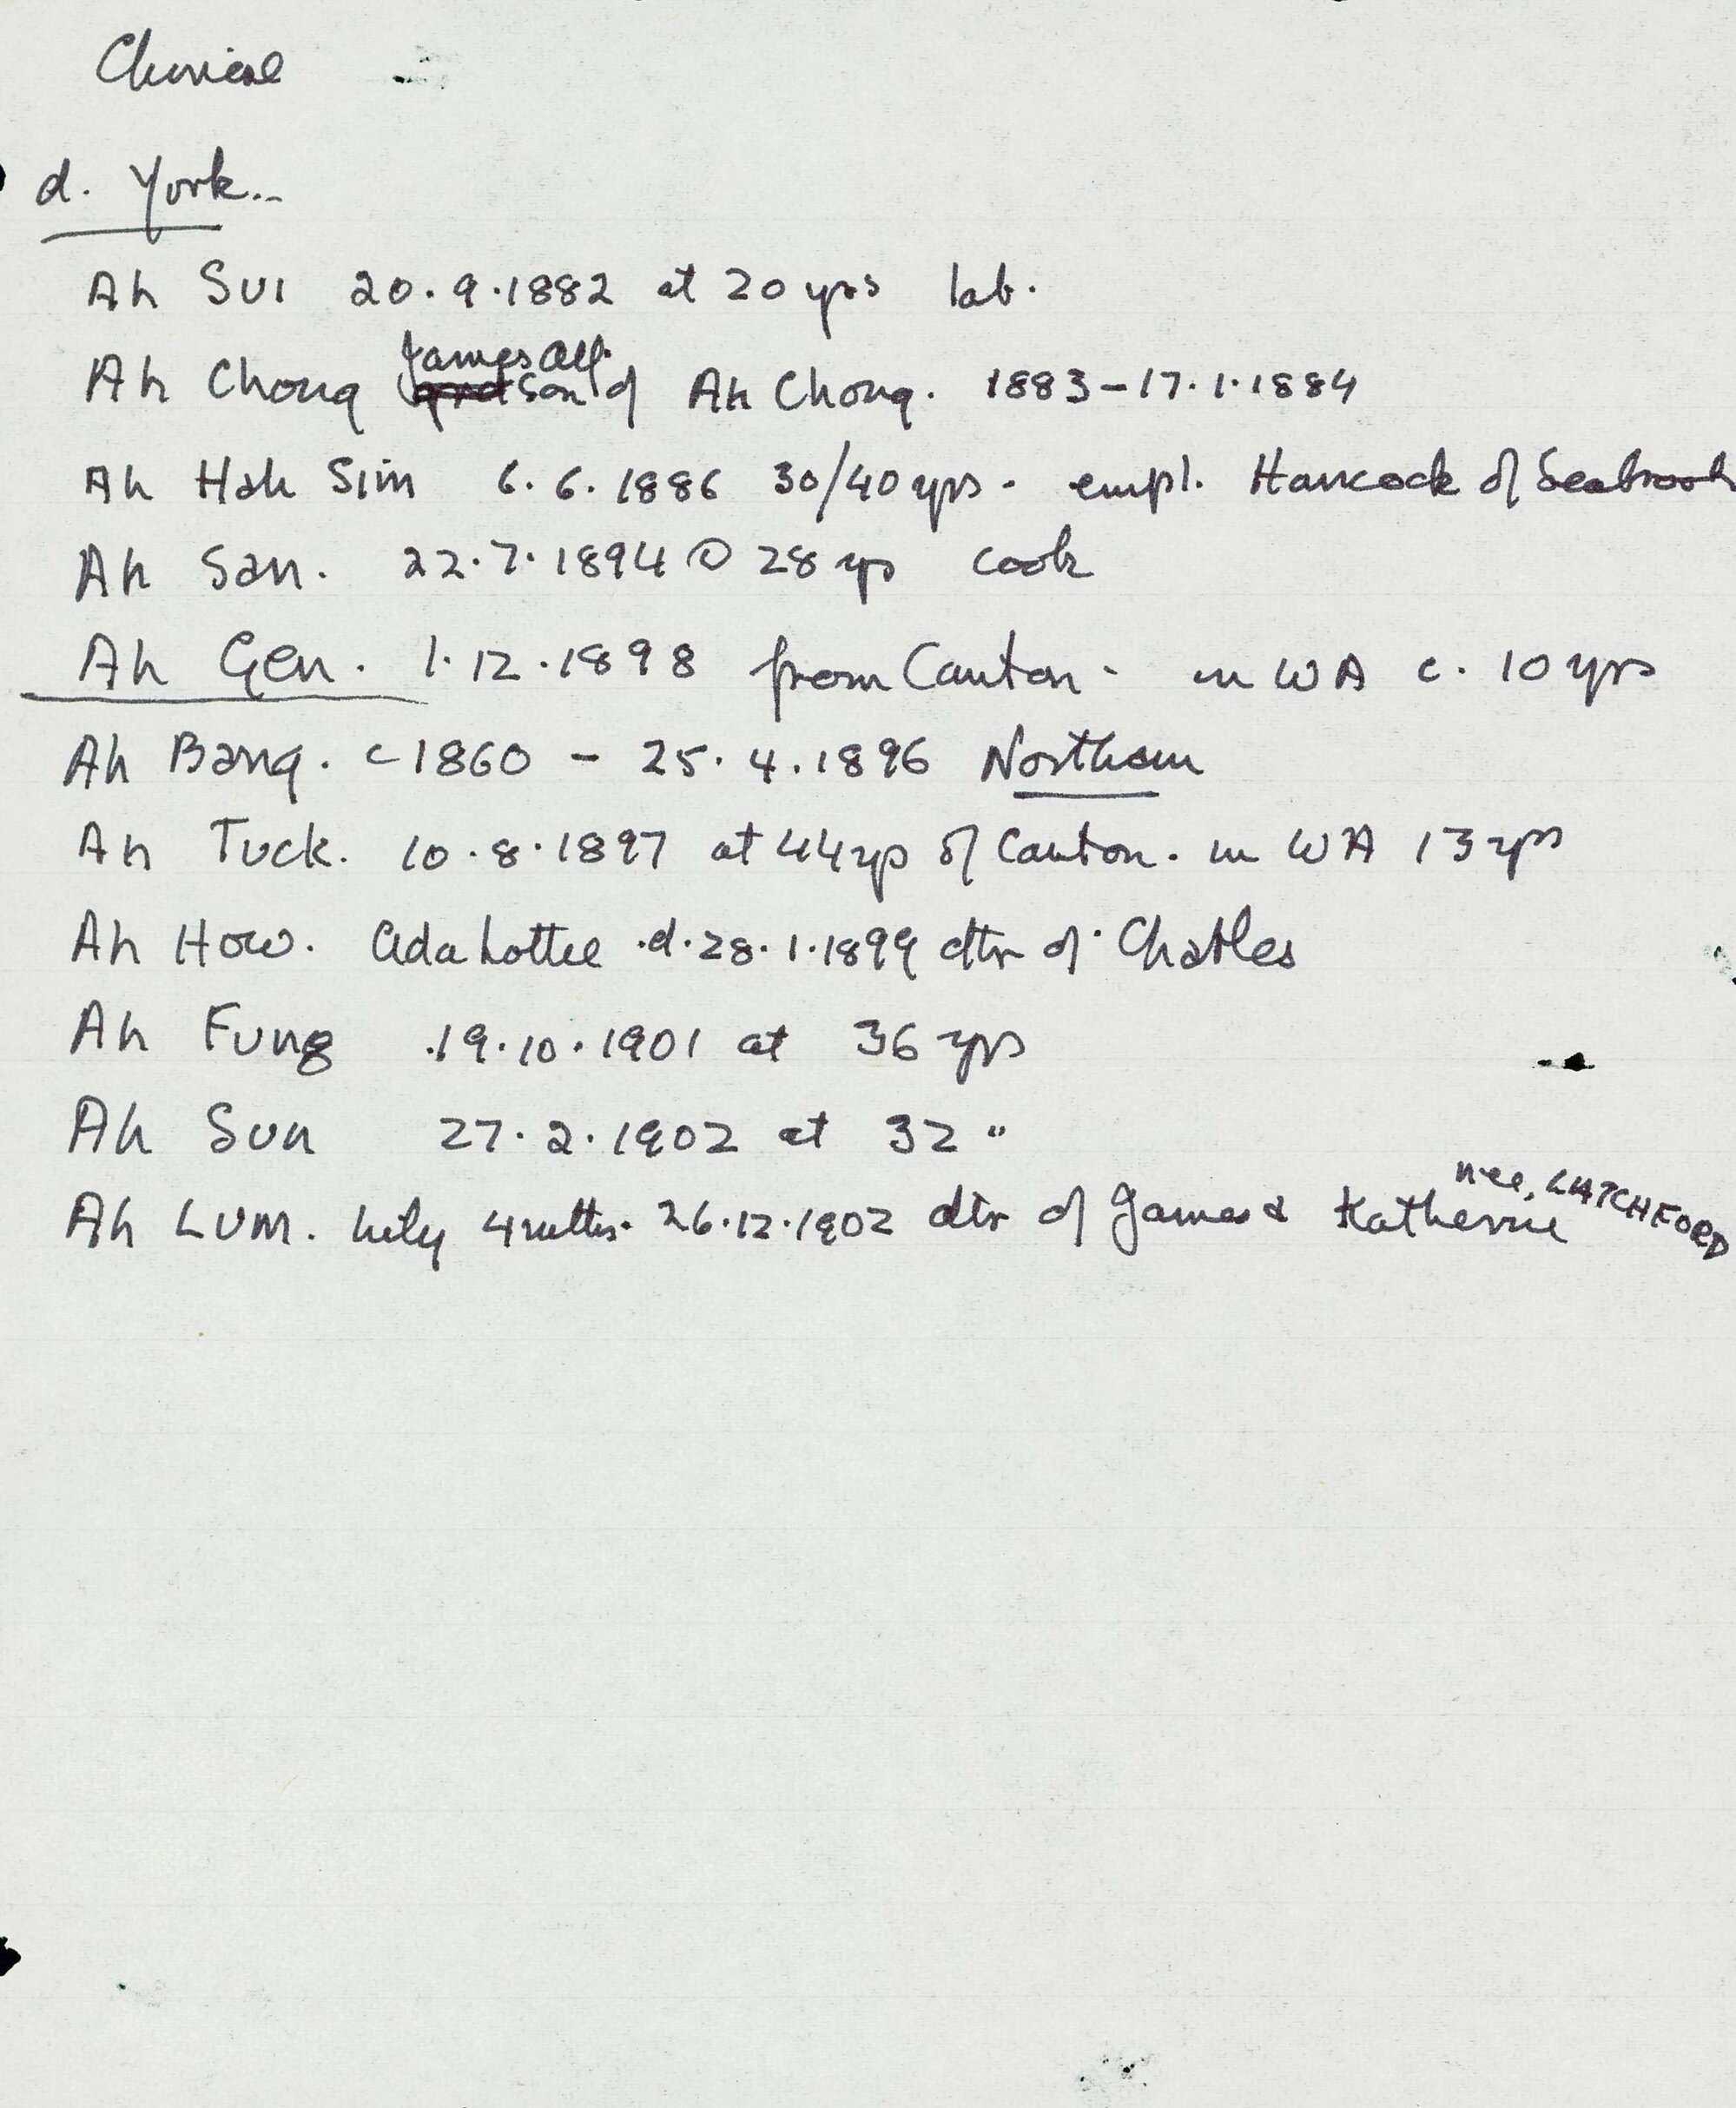 Chinese
d. York..
Ah Sui 20.9.1882 at 20 yrs lab.
James
Ah Chong son of Ah Chong. 1883-17.1.1884
Ah Hah Sim 6.6.1886 30/40 yrs. empl. Hancock of Seabrook
Ah San. 22.7.1894 @ 28 yrs cook
Ah Gen. 1.12.1898 from Canton - in WA c. 10 yrs
Ah Bang. c1860 - 25.4.1896 Northam
Ah Tuck. 10.8.1897 at 44 yrs of Canton. in WA 13 yrs
Ah How. Ada Lottee d.28.1.1899 dtr of Charles
Ah Fung 19.10.1901 at 36 yrs
Ah Sun 27.2.1902 at 32 "
nee, LATCHFORD
Ah Lum. Lily 4 mths. 26.12.1902 dtr of James & Katherine